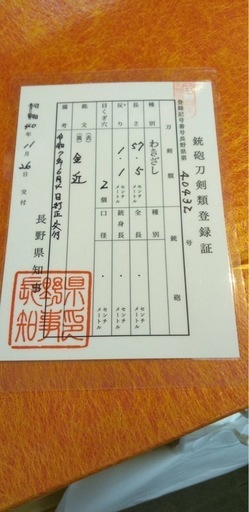 銃砲刀剣類登録証
登録記号番号長野県第40432号
刀剣類 銃砲
種別 わきざし 種別
長さ 57.5センチメートル 全長 ・ センチメートル
反り 1.1センチメートル 銃身長 ・ センチメートル
目くぎ穴 2個 口径 ・ センチメートル
銘文 (表) 金近
(裏)
備考
昭和40年11月26日交付
長野県知事
長野県知事印